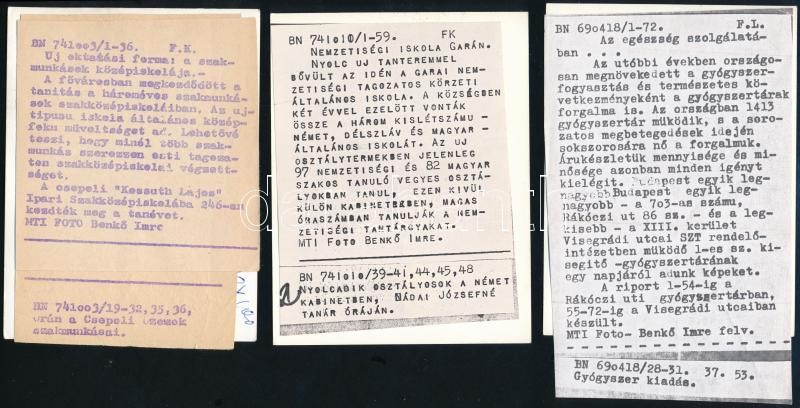 BN 741oo3/1-36. F.K.
Uj oktatási forma: a szak-
munkások középiskolája.-
A fővárosban megkezdődött a
tanitás a hároméves szakmunká-
sok szakközépiskoláiban. Az uj-
tipusu iskola általános közép-
foku műveltséget ad. Lehetővé
teszi, hogy minél több szak-
munkás szerezzen esti tagoza-
ton szakközépiskolai végzett-
séget.
A csepeli "Kossuth Lajos"
Ipari Szakközépiskolába 246-an
kezdték meg a tanévet.
MTI FOTO Benkő Imre
BN 741oo3/19-32,35,36,
órán a Csepeli üzemek
szakmunkásai.
BN 741010/1-59. FK
NEMZETISÉGI ISKOLA GARÁN.
NYOLC UJ TANTEREMMEL
BŐVÜLT AZ IDÉN A GARAI NEM-
ZETISÉGI TAGOZATOS KÖRZETI
ÁLTALÁNOS ISKOLA. A KÖZSÉGBEN
KÉT ÉVVEL EZELŐTT VONTÁK
ÖSSZE A HÁROM KISLÉTSZÁMU -
NÉMET, DÉLSZLÁV ÉS MAGYAR -
ÁLTALÁNOS ISKOLÁT. AZ UJ
OSZTÁLYTERMEKBEN JELENLEG
97 NEMZETISÉGI ÉS 82 MAGYAR
SZAKOS TANULÓ VEGYES OSZTÁ-
LYOKBAN TANUL. EZEN KIVÜL
KÜLÖN KABINETEKBEN, MAGAS
ÓRASZÁMBAN TANULJÁK A NEM-
ZETISÉGI TANTÁRGYAKAT.
MTI FOTO BENKŐ IMRE.
BN 741010/39-41,44,45,48
NYOLCADIK OSZTÁLYOSOK A NÉMET
KABINETBEN, NÁDAI JÓZSEFNÉ
TANÁR ÓRÁJÁN.
BN 69o418/1-72. F.L.
Az egészség szolgálatá-
ban . . .
Az utóbbi években országo-
san megnövekedett a gyógyszer-
fogyasztás és természetes kö-
vetkezményeként a gyógyszertárak
forgalma is. Az országban 1413
gyógyszertár müködik, s a soro-
zatos megbetegedések idején
sokszorosára nő a forgalmuk.
Árukészletük mennyisége és mi-
nősége azonban minden igényt
kielégit. Budapest egyik leg-
nagyobbBudapest egyik leg-
nagyobb - a 7o3-as számu,
Rákóczi ut 86 sz. - és a leg-
kisebb - a XIII. kerület
Visegrádi utcai SZT rendelő-
intézetben müködő 1-es sz. ki-
segitő -gyógyszertárának
egy napjáról adunk képeket.
A riport 1-54-ig a
Rákóczi uti gyógyszertárban,
55-72-ig a Visegrádi utcaiban
készült.
MTI Foto- Benkő Imre felv.
BN 69o418/28-31. 37. 53.
Gyógyszer kiadás.